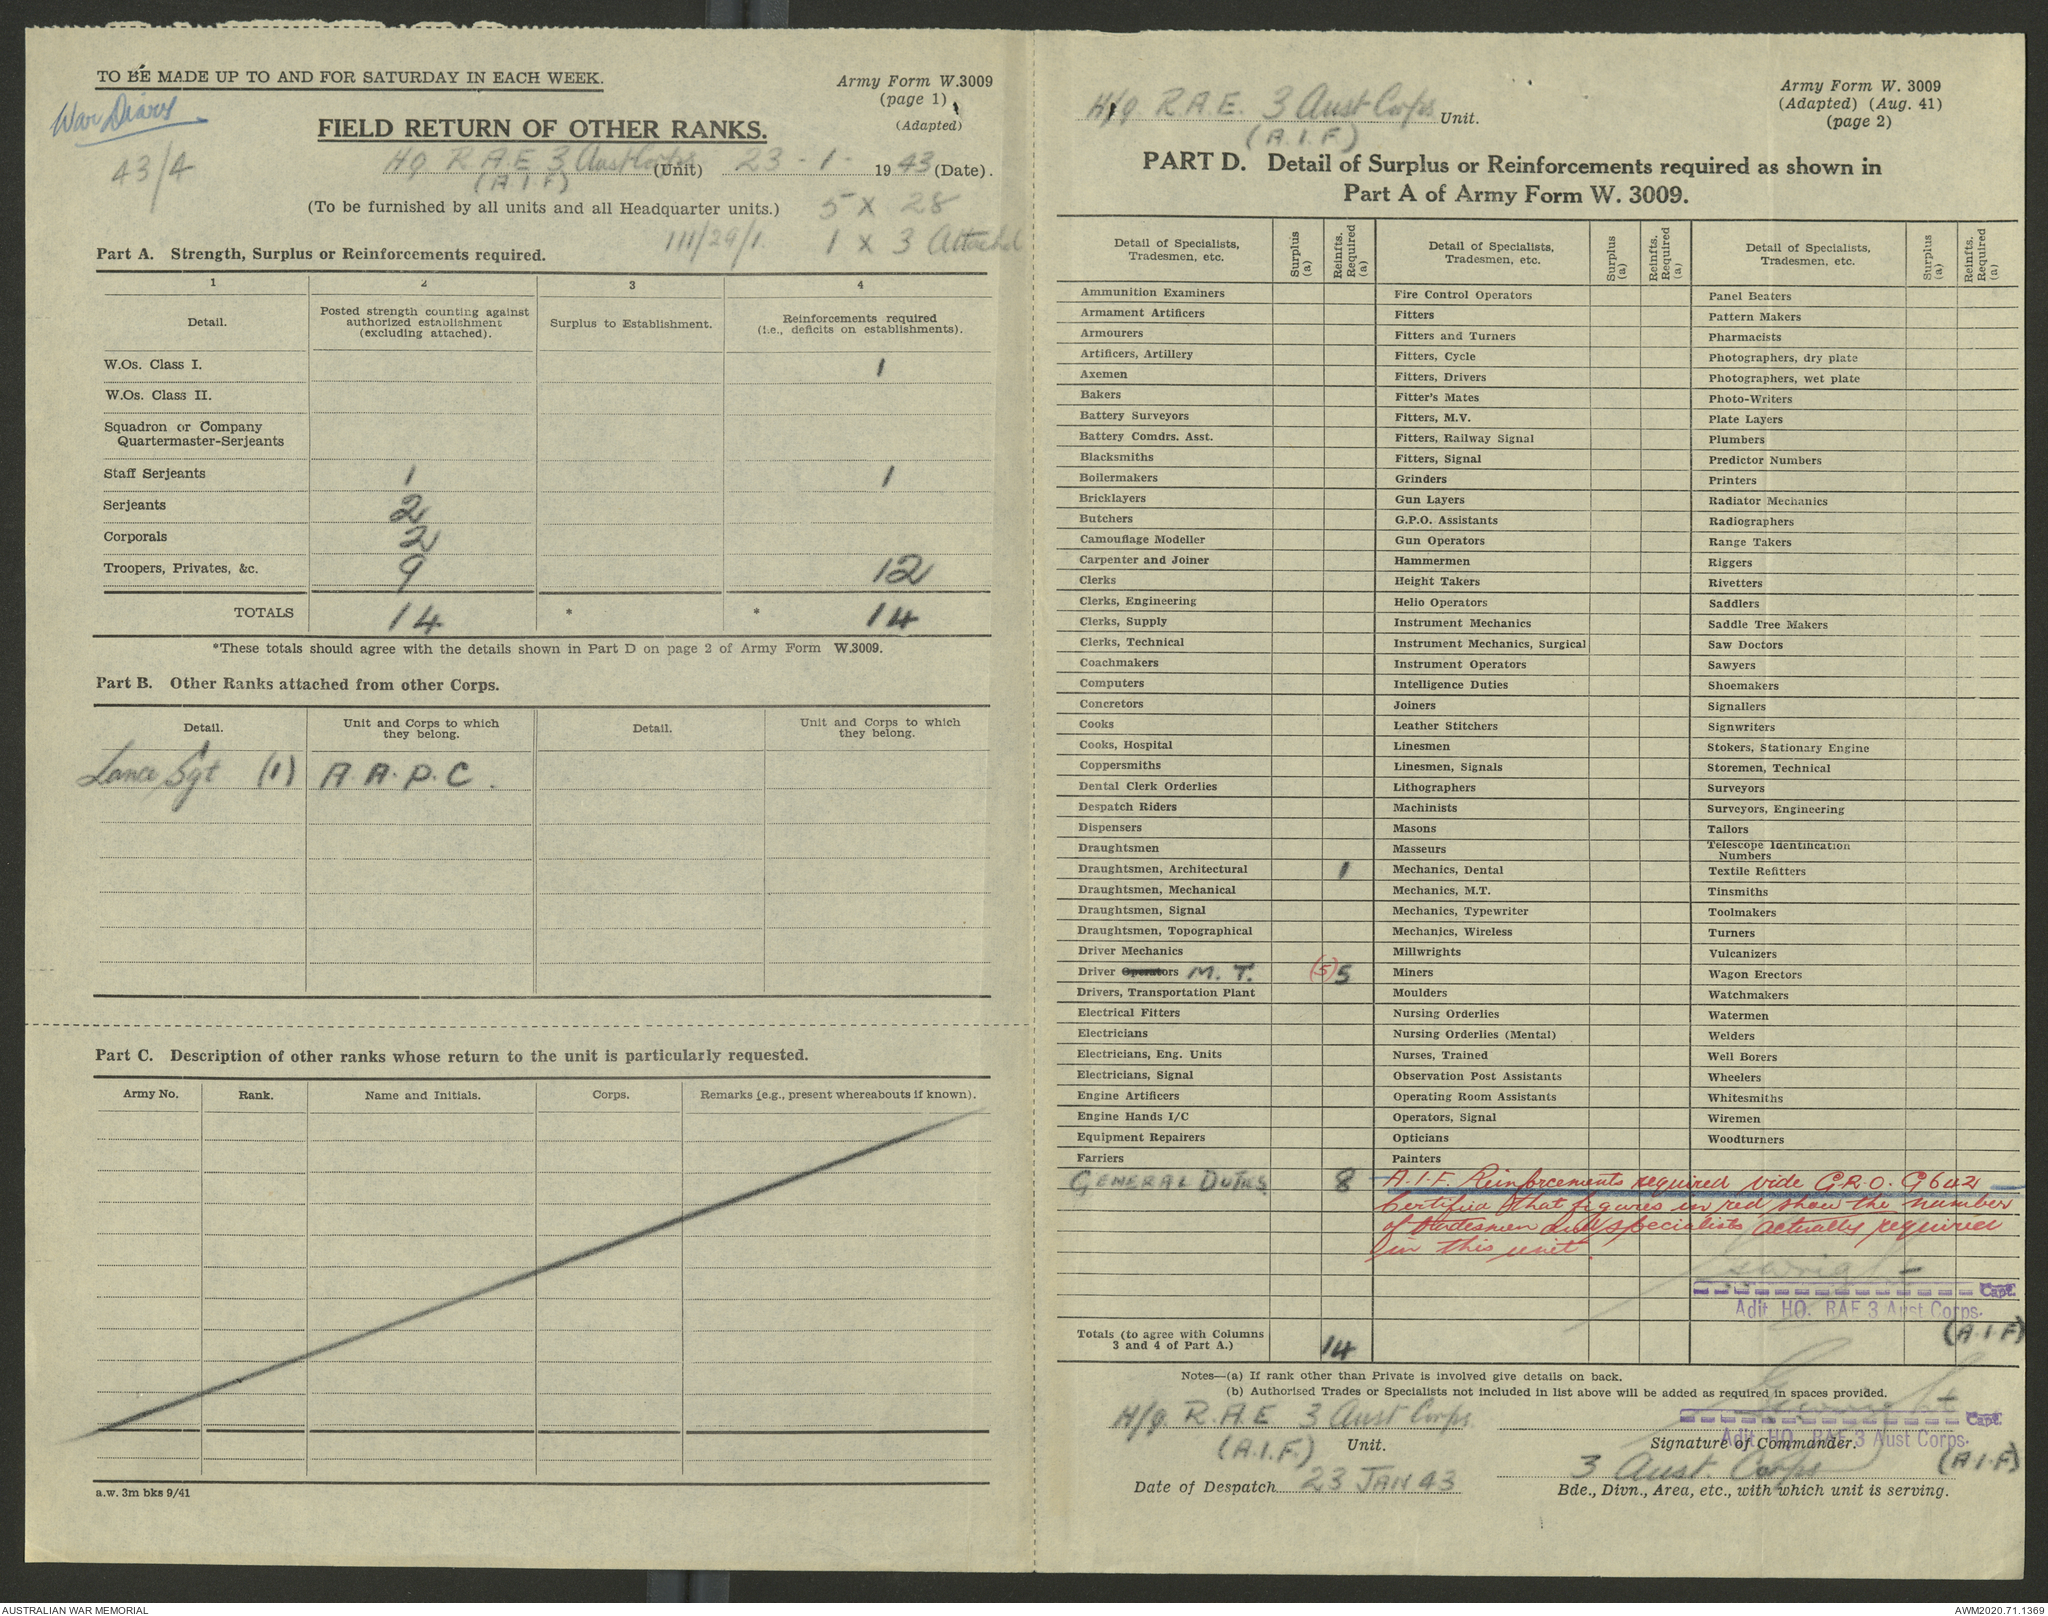 TO BE MADE UP TO AND FOR SATURDAY IN EACH WEEK.
Army Form W.3009
(page 1)
(Adapted)
War Diary
43/4
FIELD RETURN OF OTHER RANKS.
Hq R.A.E. 3 Aust Corps (Unit) 23 - 1 - 1943 (Date).
(A.I.F)
(To be furnished by all units and all Headquarter units.)
5 X 28
111/29/1.
1 x 3 Attached
Part A. Strength, Surplus or Reinforcements required.
1 2 3 4
Detail. Posted strength counting against authorized establishment (excluding attached). Surplus to Establishment. Reinforcements required (i.e., deficits on establishments).
W.Os. Class I. 1
W.Os. Class II.
Squadron or Company
Quartermaster-Serjeants
Staff Serjeants 1 1
Serjeants 2
Corporals 2
Troopers, Privates, &c. 9 12
TOTALS 14 * * 14
*These totals should agree with the details shown in Part D on page 2 of Army Form W.3009.
Part B. Other Ranks attached from other Corps.
Detail. Unit and Corps to which they belong. Detail. Unit and Corps to which they belong.
Lance Sgt (1) A.A.P.C.
Part C. Description of other ranks whose return to the unit is particularly requested.
Army No. Rank. Name and Initials. Corps. Remarks (e.g., present whereabouts if known).
a.w. 3m bks 9/41
H/q. R.A.E. 3 Aust Corps Unit.
(A.I.F)
Army Form W. 3009
(Adapted) (Aug. 41)
(page 2)
PART D. Detail of Surplus or Reinforcements required as shown in
Part A of Army Form W. 3009.
Detail of Specialists, Tradesmen, etc. Surplus (a) Reinfts. Required (a) Detail of Specialists, Tradesmen, etc. Surplus (a) Reinfts. Required (a) Detail of Specialists, Tradesmen, etc. Surplus (a) Reinfts. Required (a)
Ammunition Examiners Fire Control Operators Panel Beaters
Armament Artificers Fitters Pattern Makers
Armourers Fitters and Turners Pharmacists
Artificers, Artillery Fitters, Cycle Photographers, dry plate
Axemen Fitters, Drivers Photographers, wet plate
Bakers Fitter's Mates Photo-Writers
Battery Surveyors Fitters, M.V. Plate Layers
Battery Comdrs. Asst. Fitters, Railway Signal Plumbers
Blacksmiths Fitters, Signal Predictor Numbers
Boilermakers Grinders Printers
Bricklayers Gun Layers Radiator Mechanics
Butchers G.P.O. Assistants Radiographers
Camouflage Modeller Gun Operators Range Takers
Carpenter and Joiner Hammermen Riggers
Clerks Height Takers Rivetters
Clerks, Engineering Helio Operators Saddlers
Clerks, Supply Instrument Mechanics Saddle Tree Makers
Clerks, Technical Instrument Mechanics, Surgical Saw Doctors
Coachmakers Instrument Operators Sawyers
Computers Intelligence Duties Shoemakers
Concretors Joiners Signallers
Cooks Leather Stitchers Signwriters
Cooks, Hospital Linesmen Stokers, Stationary Engine
Coppersmiths Linesmen, Signals Storemen, Technical
Dental Clerk Orderlies Lithographers Surveyors
Despatch Riders Machinists Surveyors, Engineering
Dispensers Masons Tailors
Draughtsmen Masseurs Telescope Identification Numbers
Draughtsmen, Architectural 1 Mechanics, Dental Textile Refitters
Draughtsmen, Mechanical Mechanics, M.T. Tinsmiths
Draughtsmen, Signal Mechanics, Typewriter Toolmakers
Draughtsmen, Topographical Mechanics, Wireless Turners
Driver Mechanics Millwrights Vulcanizers
Driver Operators M.T. (5) 5 Miners Wagon Erectors
Drivers, Transportation Plant Moulders Watchmakers
Electrical Fitters Nursing Orderlies Watermen
Electricians Nursing Orderlies (Mental) Welders
Electricians, Eng. Units Nurses, Trained Well Borers
Electricians, Signal Observation Post Assistants Wheelers
Engine Artificers Operating Room Assistants Whitesmiths
Engine Hands I/C Operators, Signal Wiremen
Equipment Repairers Opticians Woodturners
Farriers Painters
GENERAL DUTIES 8 A.I.F. Reinforcements required vide G.R.O. G642
Certified that figures in red show the number
of tradesmen and specialists actually required
in this unit.
Capt.
Adjt. HQ. RAE 3 Aust Corps.
(A.I.F)
Totals (to agree with Columns
3 and 4 of Part A.) 14
Notes—(a) If rank other than Private is involved give details on back.
(b) Authorised Trades or Specialists not included in list above will be added as required in spaces provided.
H/q. R.A.E 3 Aust Corps
(A.I.F.) Unit.
Capt.
Adjt. HQ. RAE 3 Aust Corps.
Signature of Commander.
Date of Despatch 23 JAN 43
3 Aust. Corps (A.I.F)
Bde., Divn., Area, etc., with which unit is serving.
AUSTRALIAN WAR MEMORIAL
AWM2020.71.1369